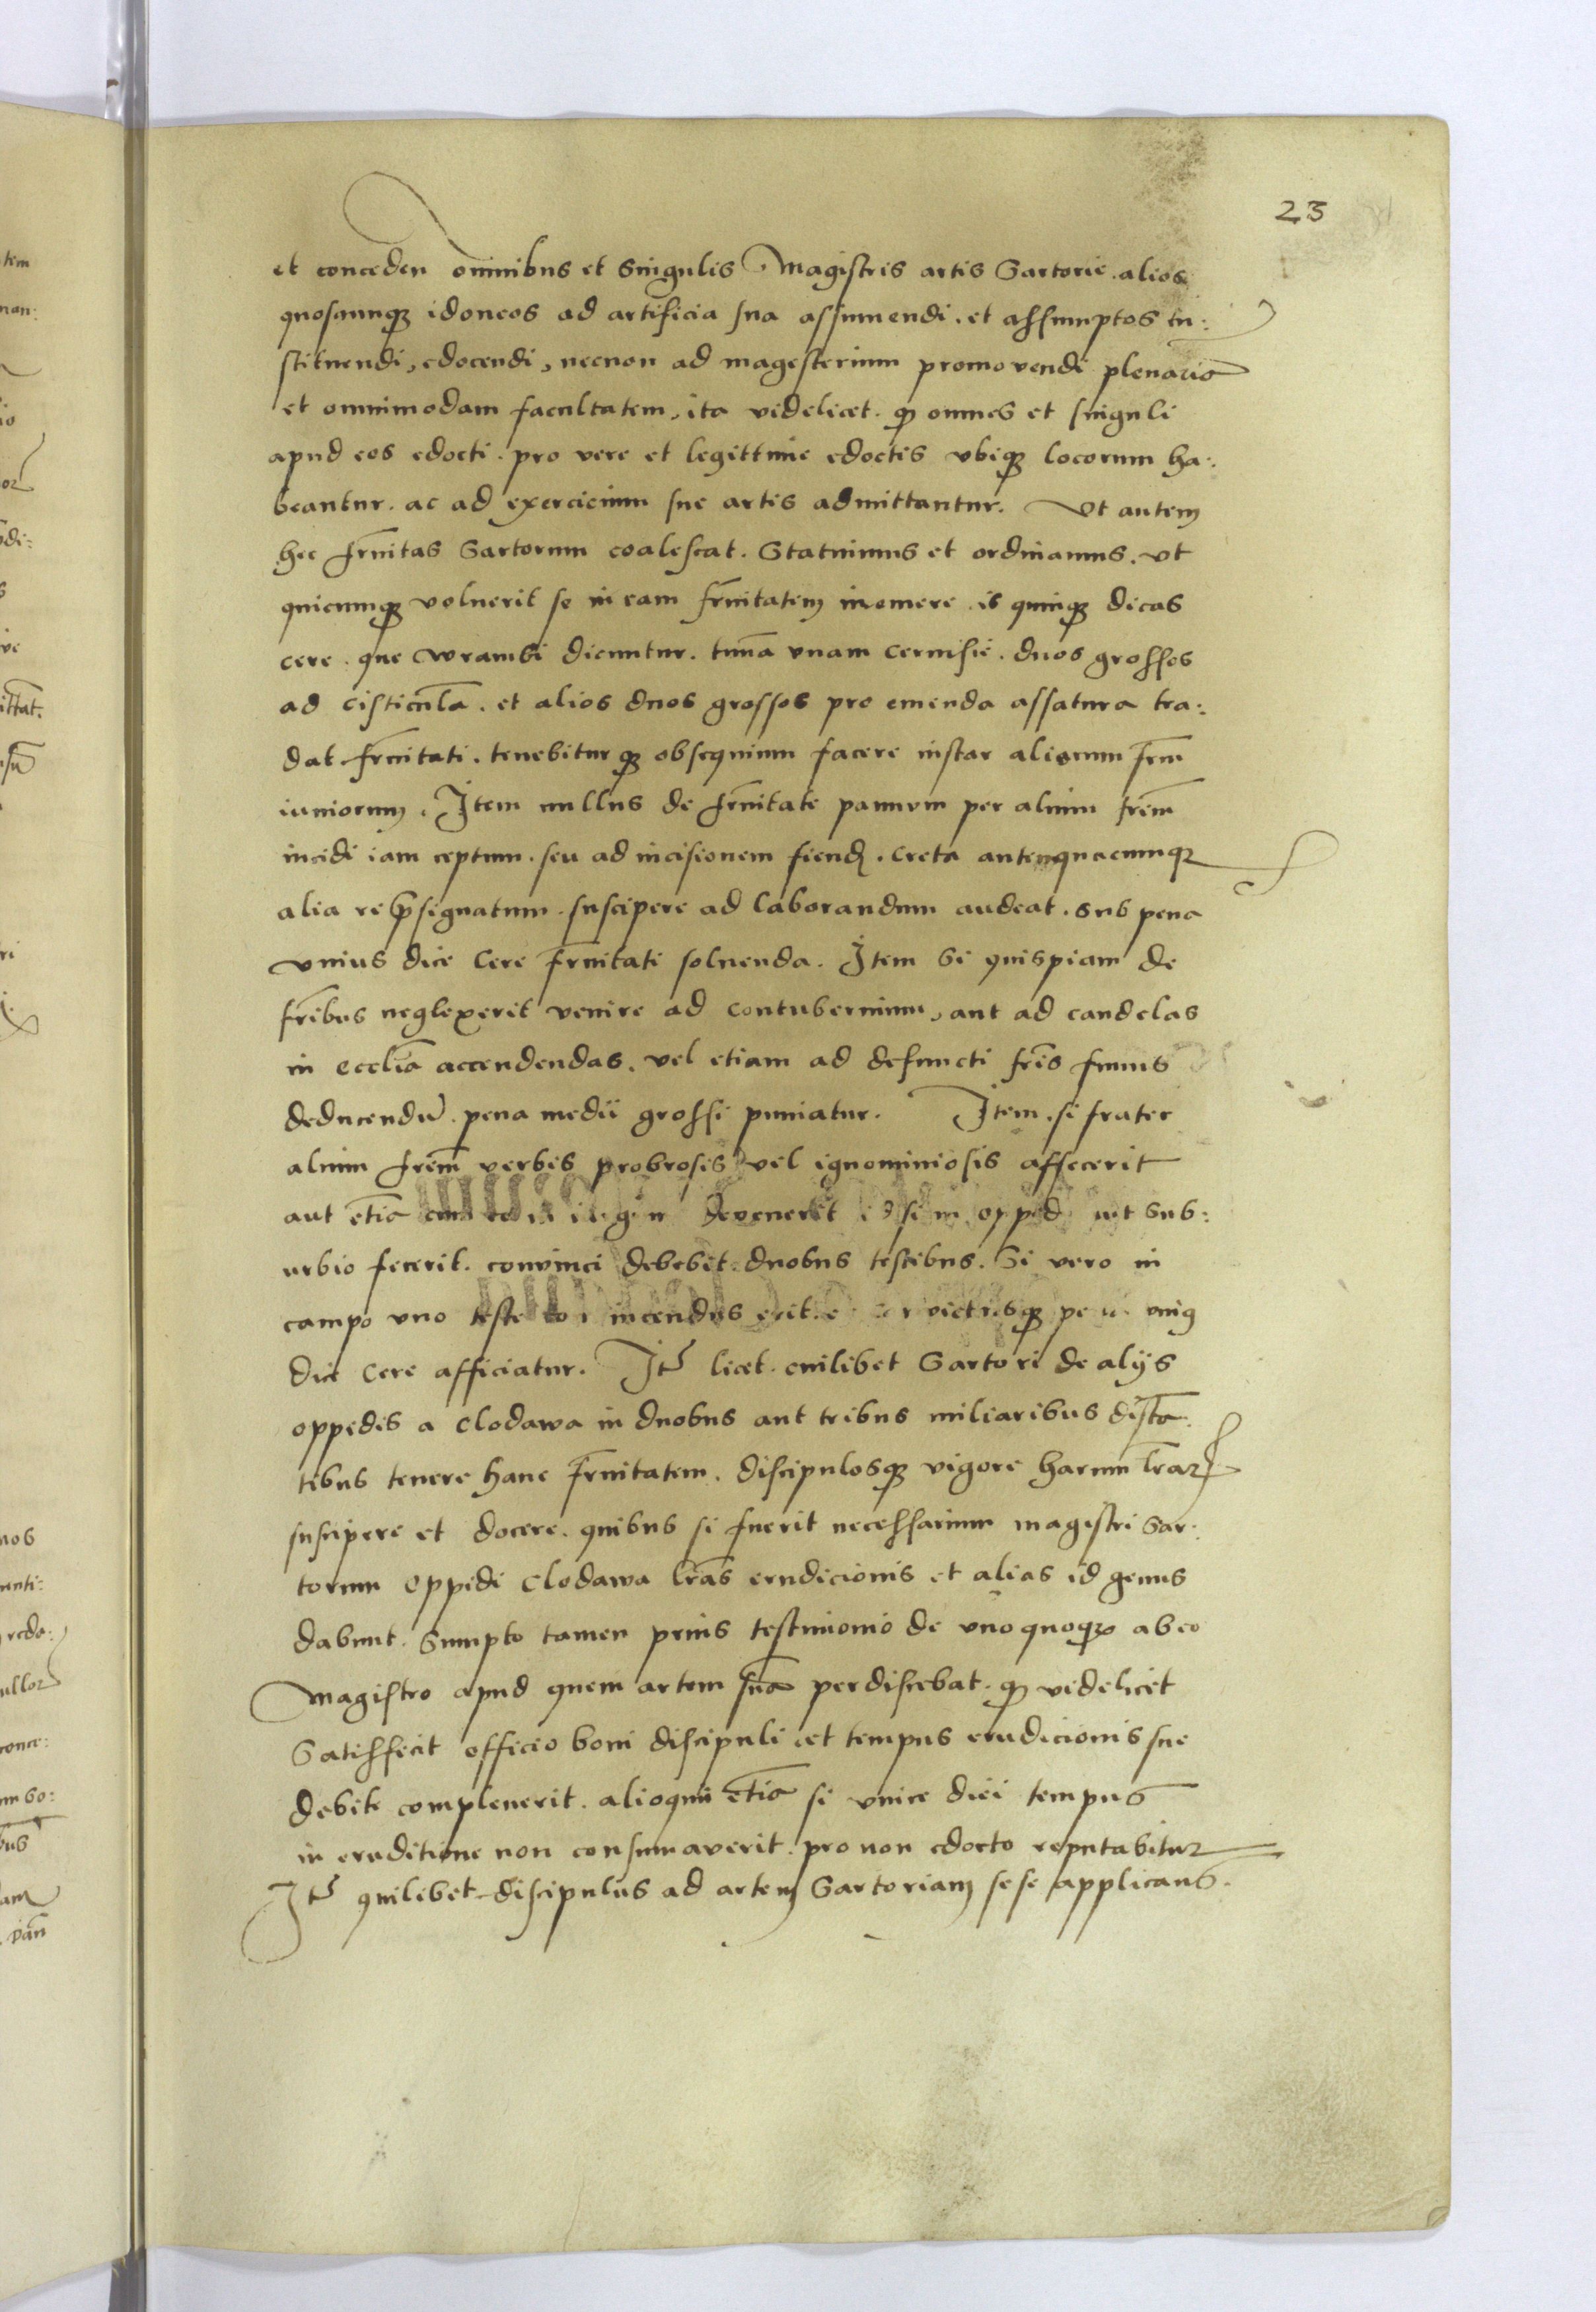 23
et conceden omnibus et singulis Magistris artis Sartorie. alios
quoscunqz idoneos ad artificia sua assumendi. et assumptos in:
stituendi, edocendi, necnon ad magesterium promovendi plenariã
et omnimodam facultatem, ita videlicet. qp omnes et singuli
apud eos edocti. pro vere et legittime edoctis vbiqz locorum ha:
beantur. ac ad exercicium sue artis admittantur. Vt autem
hec frnitas Sartorum coalescat. Statuimus et ordinamus. vt
quicumqz voluerit se in eam frnitatem inemere. is quinqz dicas
cere. que wrambi dicuntur. tunã vnam cervisie. duos grosses
ad cisticulã. et alios duos grossos pro emenda assatura tra:
dat frnitati. tenebitur qz obsequium facere instar aliorum frm
iuniorum. Item nullus de frnitate pannum per alium frem
incidi iam ceptum. seu ad incisionem fiend. creta autenquacumqz
alia re psignatum. suscipere ad laborandum audeat. sub pena
vnius dice Cere frnitati soluenda. Item Si quispiam de
fribus neglexerit venire ad contubernium, aut ad candelas
in eccliã accendendas. vel etiam ad defuncti fris funus
deducendũ. pena medii grossi puniatur. Item. si frater
alium frem verbis probrosis vel ignominiosis affecerit
aut etiã devenerit si in opped sub:
urbio fecerit. convinci debebit. duobus testibus. Si vero in
campo vno teste erit.
dice Cere afficiatur. It licet. cuilibet Sartori de alijs
oppidis a Clodawa in duobus aut tribus miliaribus distã
tibus tenere hanc frnitatem. discipulosqz vigore harum lrarz
suscipere et docere. quibus si fuerit necessarium magistri Sar:
torum Oppidi Clodawa lras erudicionis et alias id genus
dabunt. Sumpto tamen prius testimonio de vno quoqz ab eo
Magistro apud quem artem suã perdiscebat. qp videlicet
Satisfecit officio boni discipuli et tempus erudicionis sue
debite compleuerit. alioquin etiã si vnice diei tempus
in eruditione non consumaverit. pro non edocto reputabitur
It quilibet discipulus ad artem Sartoriam sese applicans.